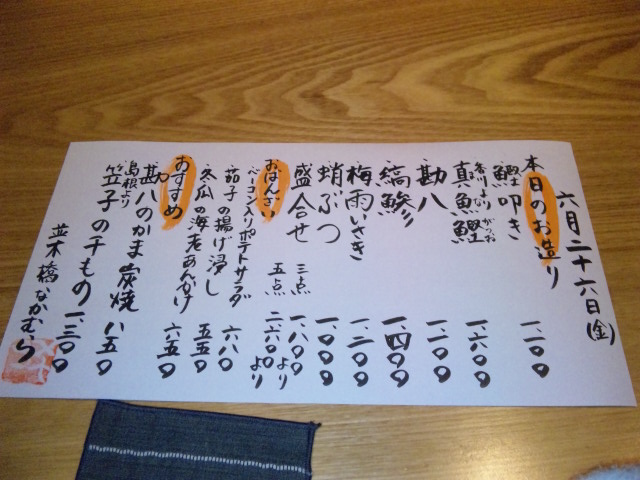 六月二十六日(金)
本日のお造り
鰹叩き 一、二〇〇
香川より まながつお
真魚鰹 一、六〇〇
勘八 一、二〇〇
縞鯵 一、四〇〇
梅雨いさき 一、二〇〇
蛸ぶつ 一、〇〇〇
盛合せ 三点 一、八〇〇より
五点 二、六〇〇より
おばんざい
ベーコン入りポテトサラダ 六八〇
茄子の揚げ浸し 五五〇
冬瓜の海老あんかけ 六五〇
おすすめ
勘八のかま炭焼 八五〇
島根より
笠子の干もの 一、三〇〇
並木橋なかむら